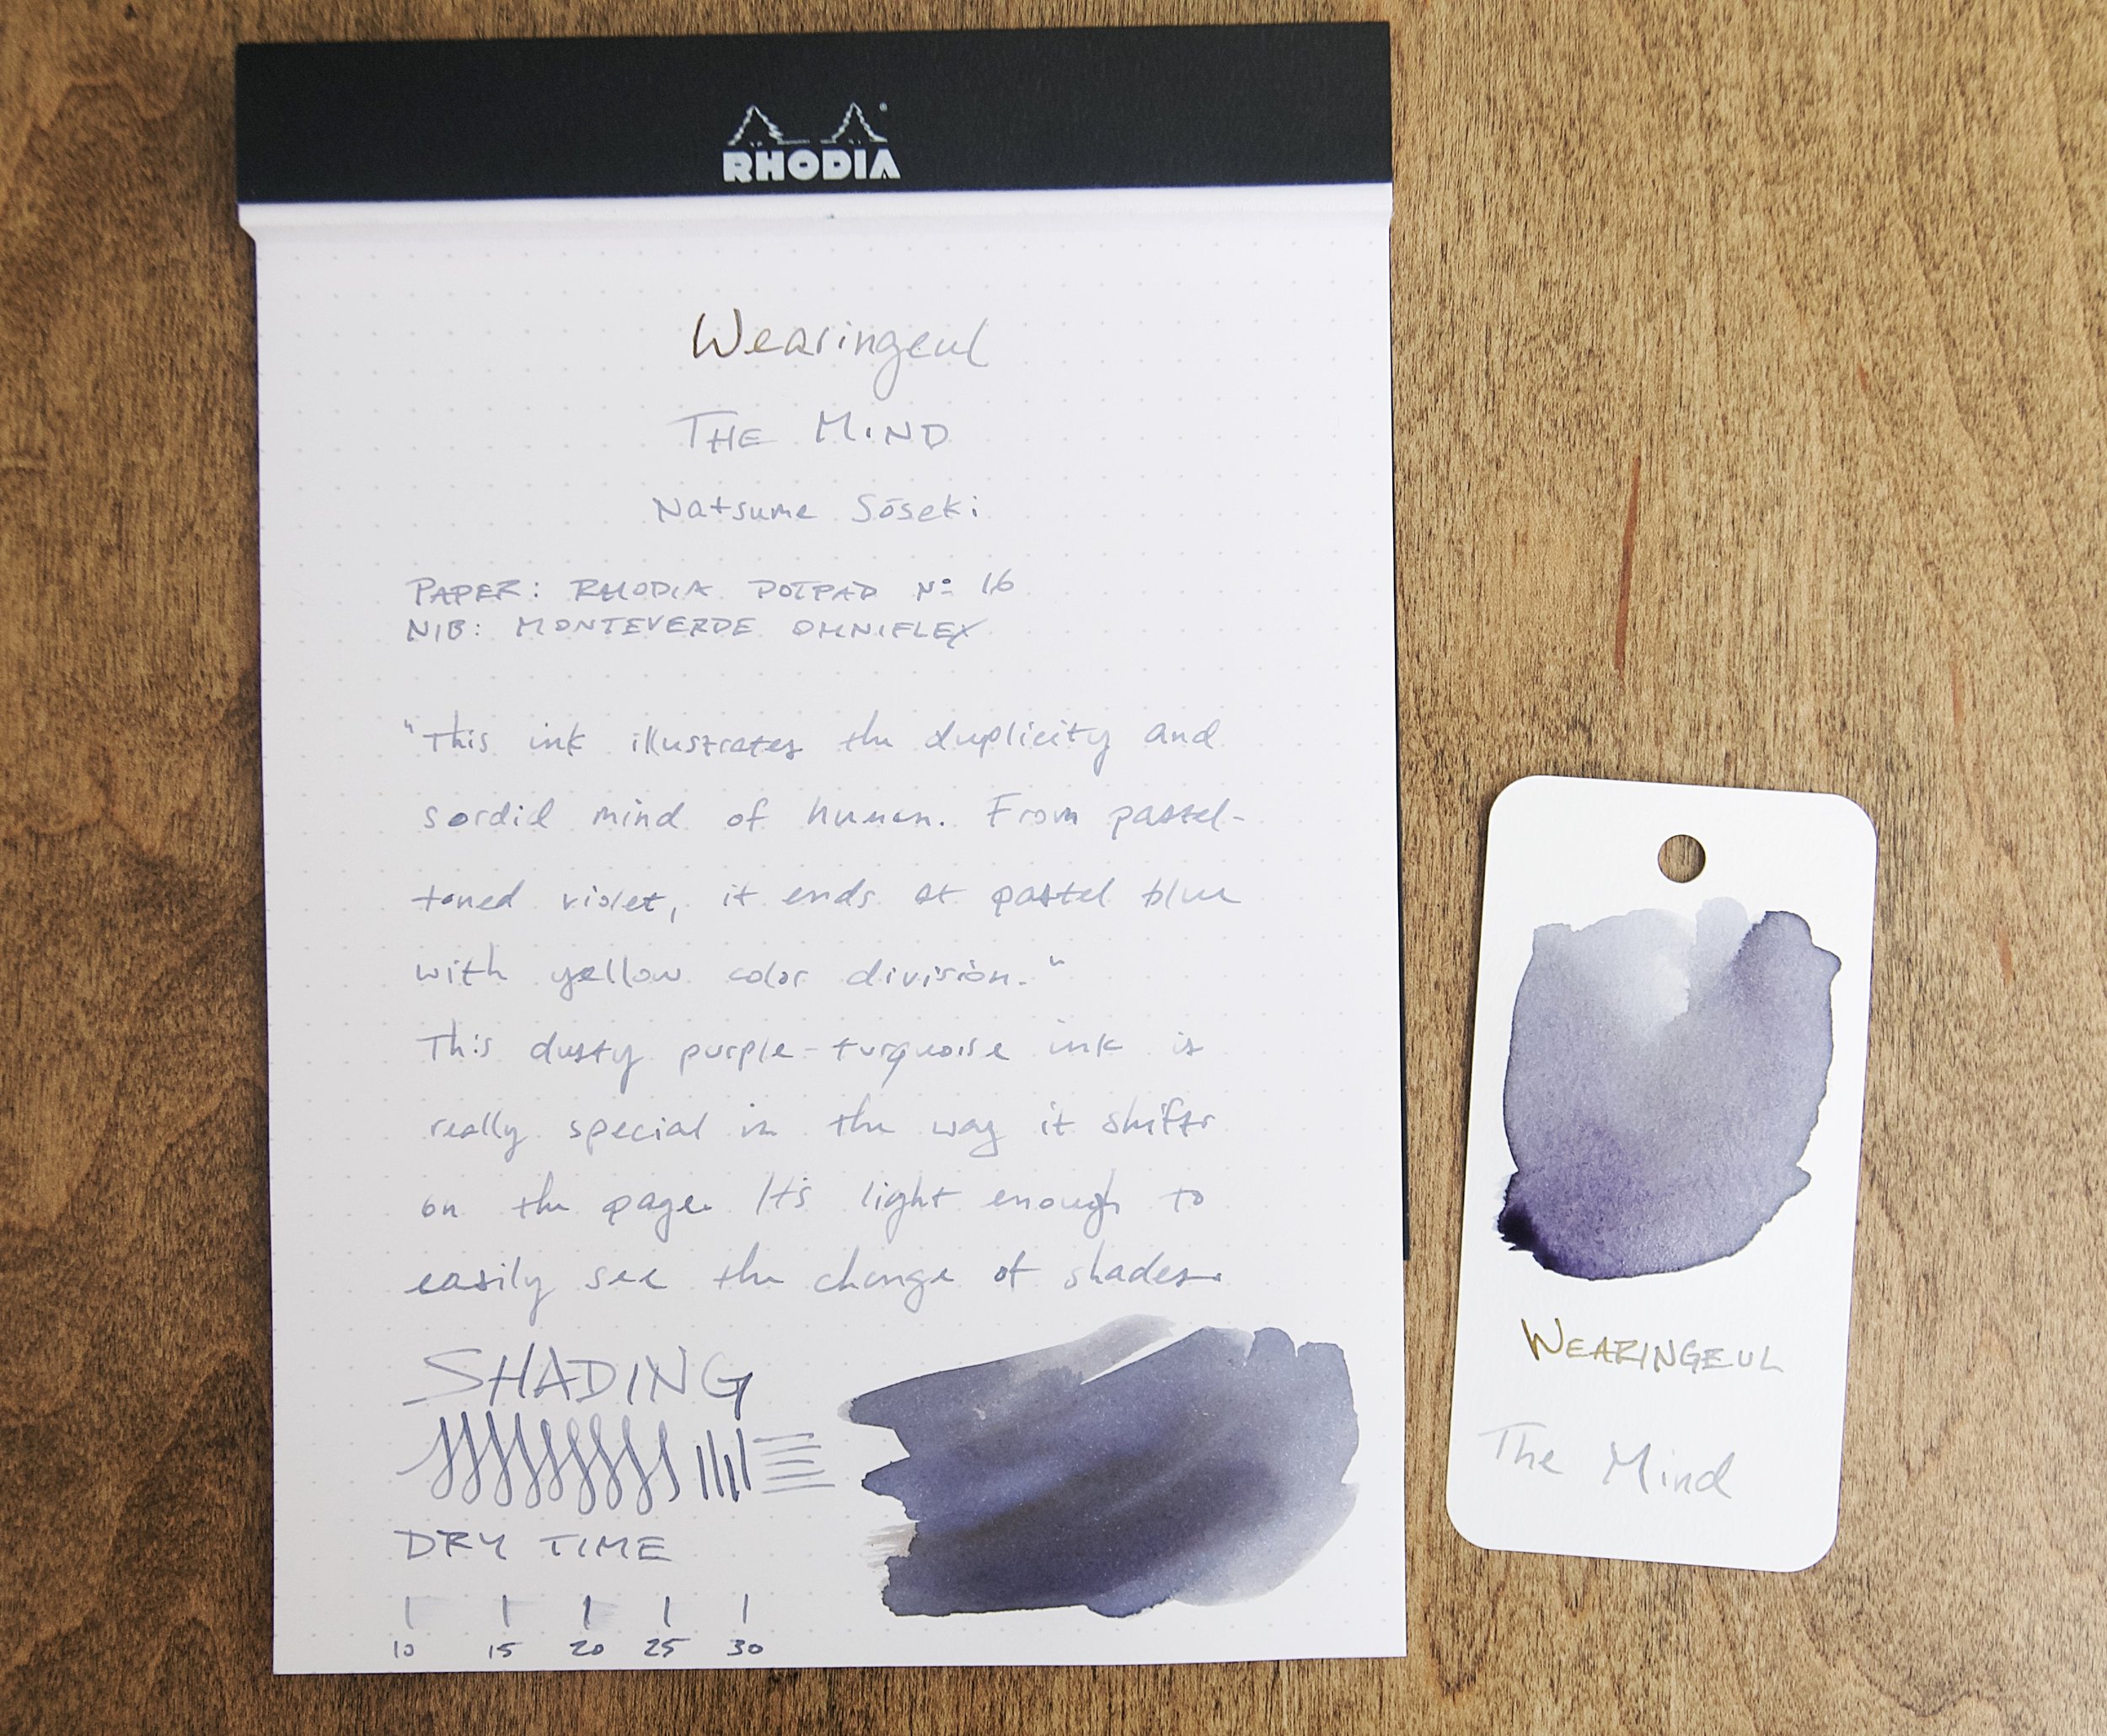 RHODIA
Wearingeul
THE MIND
Natsume Sōseki
PAPER: RHODIA DOTPAD Nº 16
NIB: MONTEVERDE OMNIFLEX
"This ink illustrates the duplicity and
sordid mind of human. From pastel-
toned violet, it ends at pastel blue
with yellow color division."
This dusty purple-turquoise ink is
really special in the way it shifts
on the page. It's light enough to
easily see the change of shades.
SHADING
DRY TIME
10 15 20 25 30
WEARINGEUL
The Mind